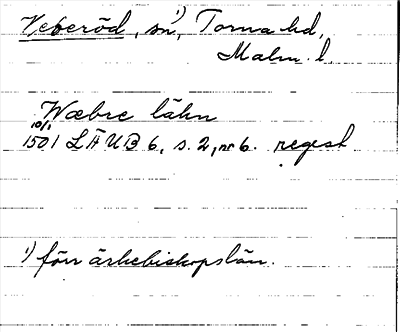 Veberöd, sn¹⁾, Torna hd,
Malm. l.
Wæbre lähn
10/1 1501 LÄUB 6, s. 2, nr 6. regest
¹⁾ förr ärkebiskopslän.